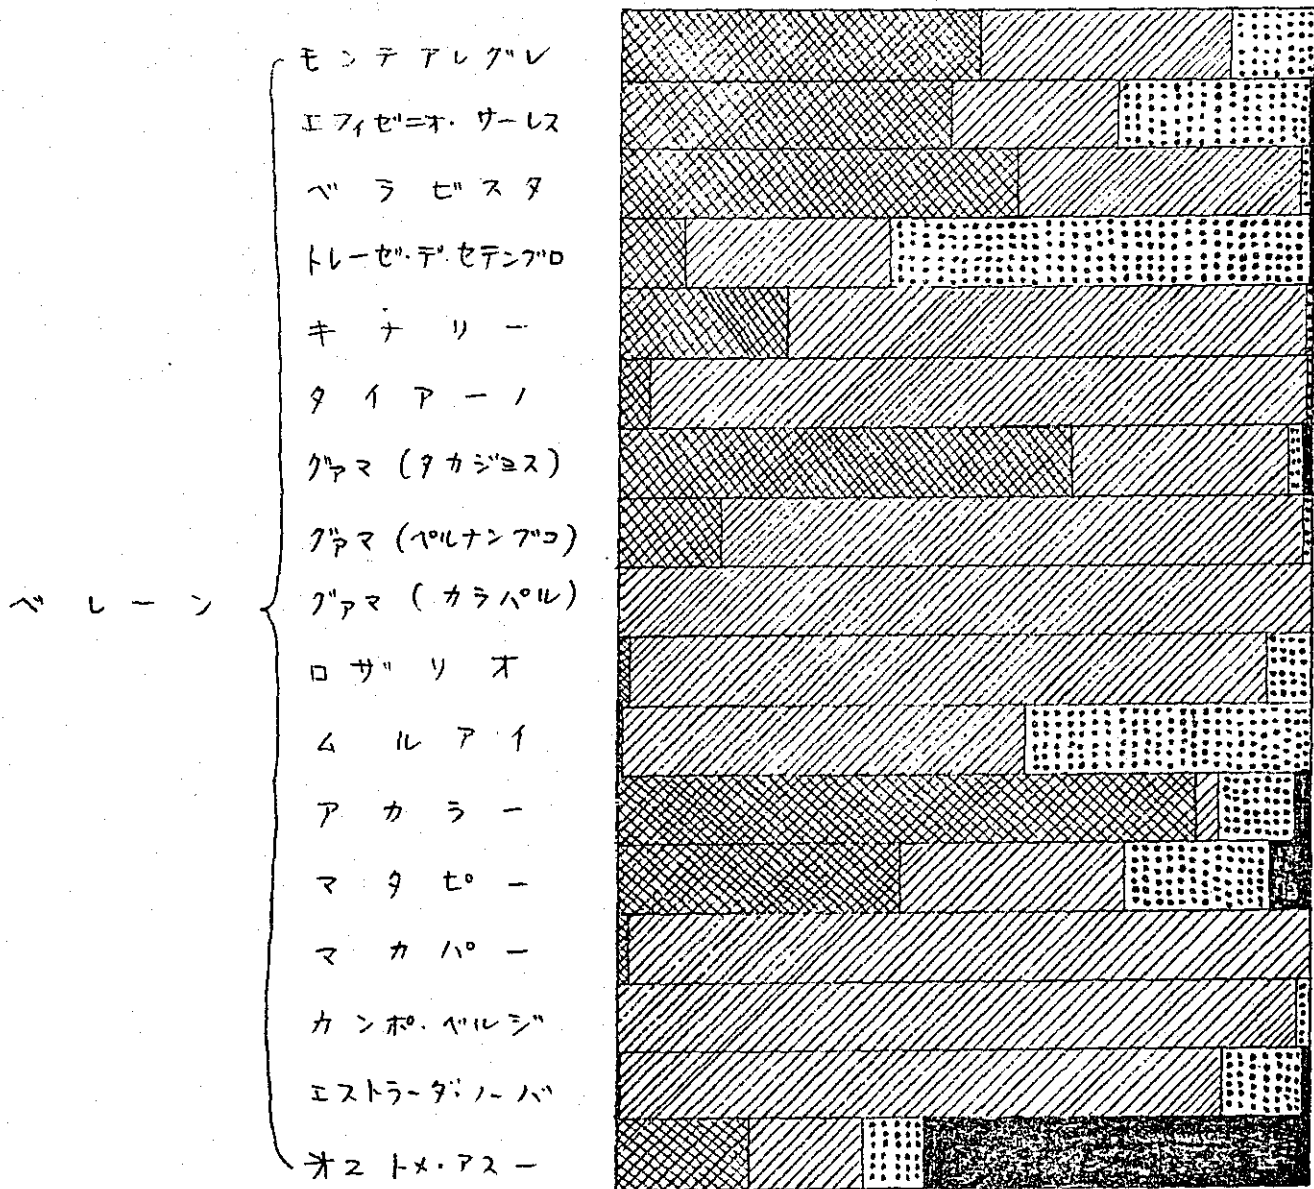 モンテアレグレ
エフィゼニオ・サーレス
ベラビスタ
トレーゼ・デ・セテンブロ
キナリー
タイアーノ
グァマ(タカジョス)
グァマ(ペルナンブコ)
ベレーン
グァマ(カラパル)
ロザリオ
ムルアイ
アカラー
マタピー
マカパー
カンポ・ベルジ
エストラーダ・ノーバ
オ2トメ・アスー